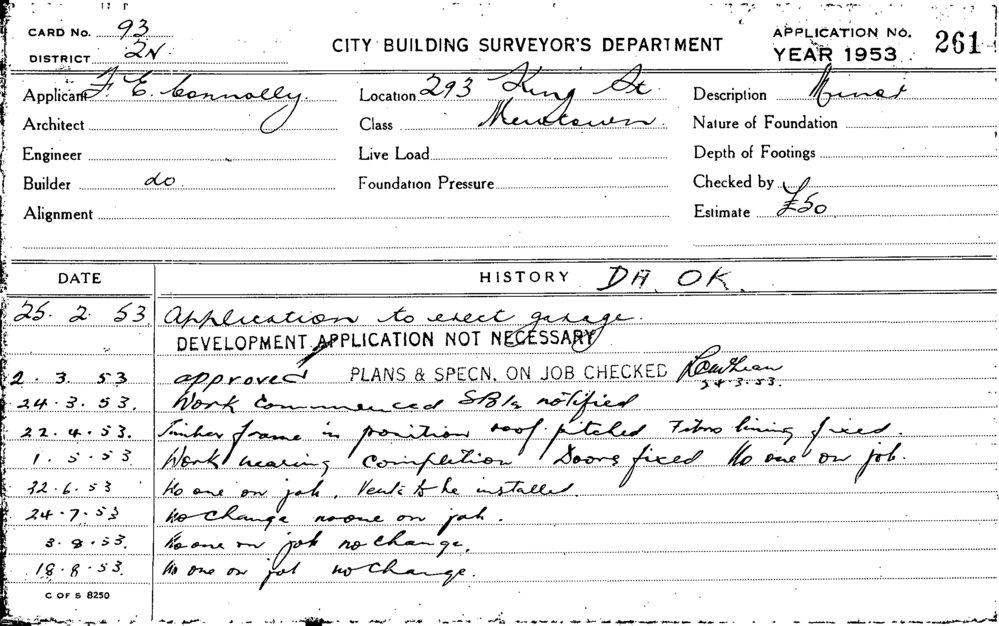 CARD No. 93
DISTRICT 2N.
CITY BUILDING SURVEYOR'S DEPARTMENT
APPLICATION No.
YEAR 1953
261
Applicant F. E. Connolly Location 293 King St. Description Minor
Architect Class Newtown. Nature of Foundation
Engineer Live Load Depth of Footings
Builder do Foundation Pressure Checked by
Alignment Estimate £50
DATE HISTORY DA. OK.
25. 2. 53 Application to erect garage.
DEVELOPMENT APPLICATION NOT NECESSARY
2. 3. 53 approved PLANS & SPECN. ON JOB CHECKED
24.3.53.
24.3.53. Work commenced notified
22.4.53. Timber frame in position roof pitched Fibro lining fixed.
1.5.53 Work nearing completion Doors fixed No one on job.
22.6.53 No one on job. Vents to be installed.
24.7.53 No change no one on job.
3.8.53. No one on job no change.
18.8.53. No one on job no change.
C OF S 8250